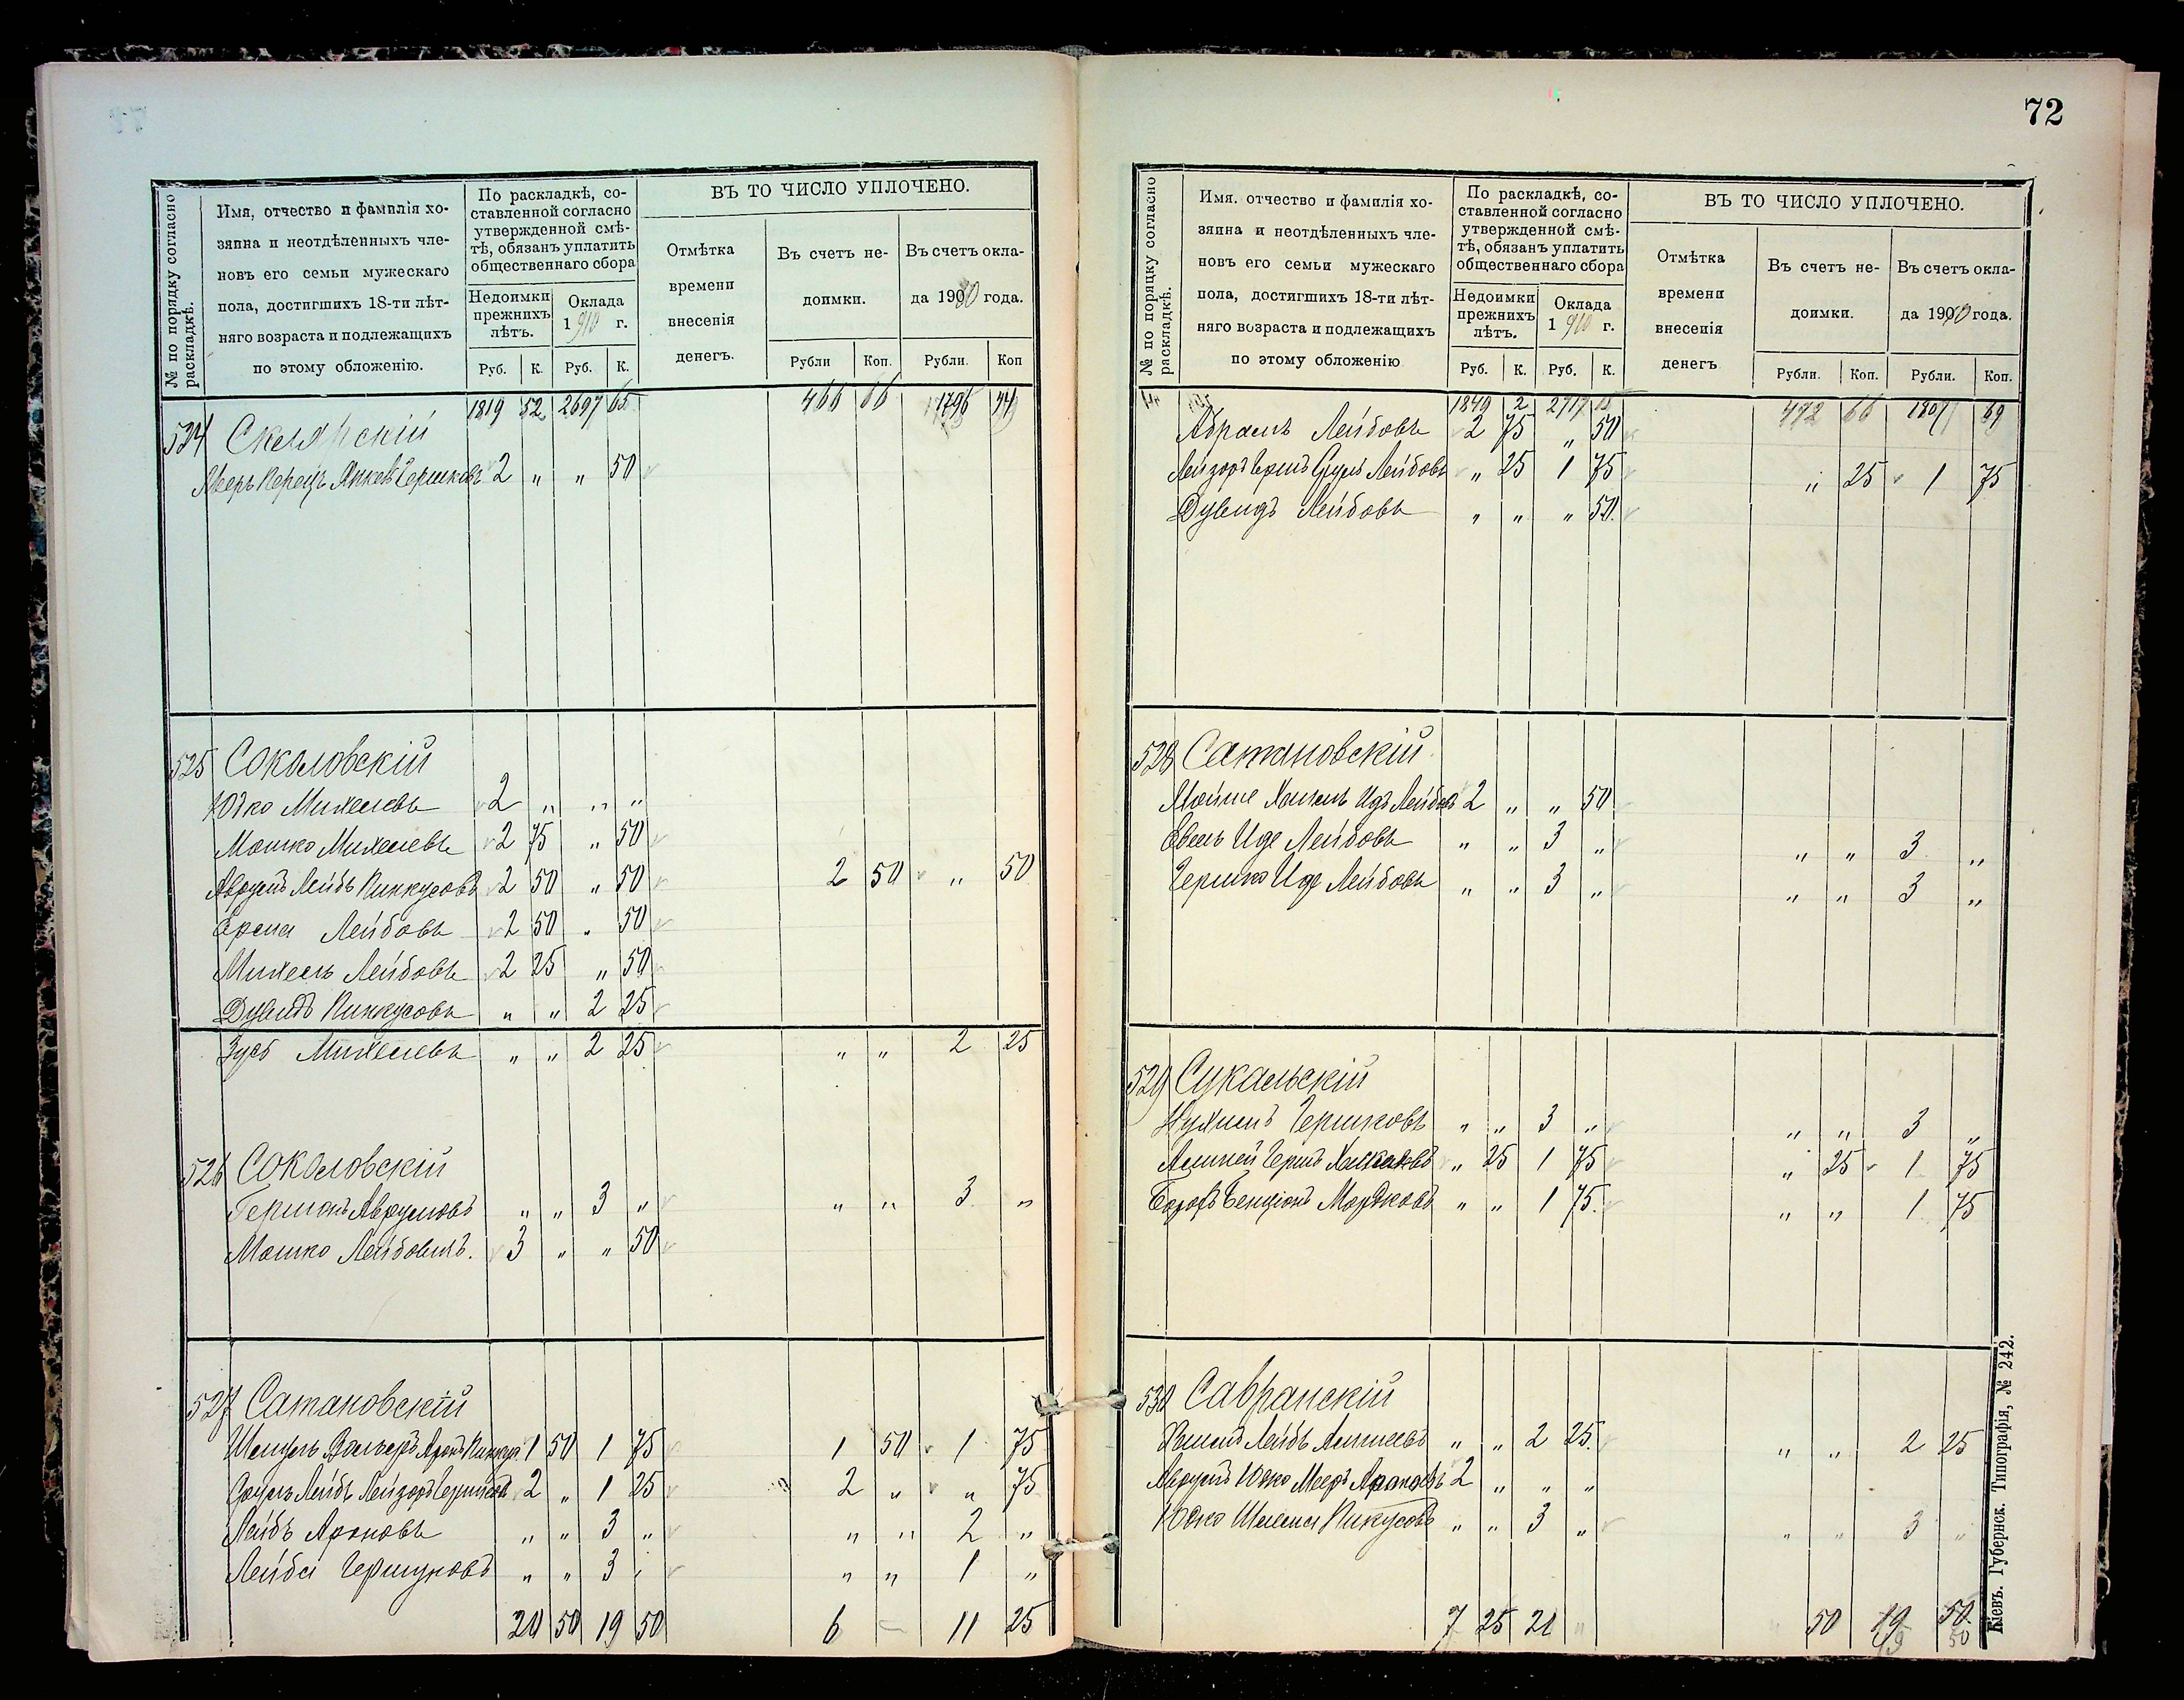 № по порядку согласно раскладкѣ.
Имя, отчество и фамилія хо-
зяина и неотдѣленныхъ чле-
новъ его семьи мужескаго
пола, достигшихъ 18-ти лѣт-
няго возраста и подлежащихъ
по этому обложенію.
По раскладкѣ, со-
ставленной согласно
утвержденной смѣ-
тѣ, обязанъ уплатить
общественнаго сбора
Недоимки
прежнихъ
лѣтъ.
Оклада
1910 г.
Руб. К. Руб. К.
ВЪ ТО ЧИСЛО УПЛОЧЕНО.
Отмѣтка
времени
внесенія
денегъ.
Въ счетъ не-
доимки.
Въ счетъ окла-
да 1910 года.
Рубли Коп. Рубли. Коп
1819 52 2697 65 466 66 1796 44
524 Склярскій
2 „ „ 50
525 Соколовскій
Юдко Михелевъ 2 „ „ „
Мошко Михелевъ 2 75 „ 50
Аврумъ Лейбъ Пинкусовъ 2 50 „ 50 2 50 „ 50
Лейбовъ 2 50 „ 50
Михель Лейбовъ 2 25 „ 50
Дувидъ Пинкусовъ „ „ 2 25
Зусь Михелевъ „ „ 2 25 „ „ 2 25
526 Соколовскій
Германъ Аврумовъ „ „ 3 „ „ „ 3 „
Мошко Лейбовичъ. 3 „ „ 50
527 Сатановскій
1 50 1 75 1 50 1 75
Срулъ Лейбъ Лейзоръ Гершковъ 2 „ 1 25 2 „ „ 75
Лейбъ Ароновъ „ „ 3 „ „ „ 2 „
Лейба Гершуновъ „ „ 3 „ „ „ 1 „
20 50 19 50 6 — 11 25
72
№ по порядку согласно раскладкѣ.
Имя. отчество и фамилія хо-
зяина и неотдѣленныхъ чле-
новъ его семьи мужескаго
пола, достигшихъ 18-ти лѣт-
няго возраста и подлежащихъ
по этому обложенію
По раскладкѣ, со-
ставленной согласно
утвержденной смѣ-
тѣ, обязанъ уплатить
общественнаго сбора
Недоимки
прежнихъ
лѣтъ.
Оклада
1910 г.
Руб. К. Руб. К.
ВЪ ТО ЧИСЛО УПЛОЧЕНО.
Отмѣтка
времени
внесенія
денегъ
Въ счетъ не-
доимки.
Въ счетъ окла-
да 1910 года.
Рубли. Коп. Рубли. Коп.
1840 2 2717 15 472 66 1807 69
Абрамъ Лейбовъ 2 75 „ 50
Лейзоръ Гершъ Сруль Лейбовъ „ 25 1 75 „ 25 1 75
Дувидъ Лейбовъ „ „ „ 50.
528 Сатановскій
Мойше 2 „ „ 50
Иде Лейбовъ „ „ 3 „ „ „ 3 „
Гершко Иде Лейбовъ „ „ 3 „ „ „ 3 „
529 Сукальскій
Нухимъ Гершковъ „ „ 3 „ „ „ 3 „
Гершъ „ 25 1 75 „ 25 1 75
Бенціонъ Мордковъ „ „ 1 75. „ „ 1 75
530 Савранскій
Лейбъ „ „ 2 25. „ „ 2 25
Аврумъ Юдко Мееръ Ароновъ 2 „ „ „
Юдко Пинкусовъ „ „ 3 „ „ „ 3 „
7 25 21 „ 50 19 50
19 50
Кіевъ. Губернск. Типографія, № 242.